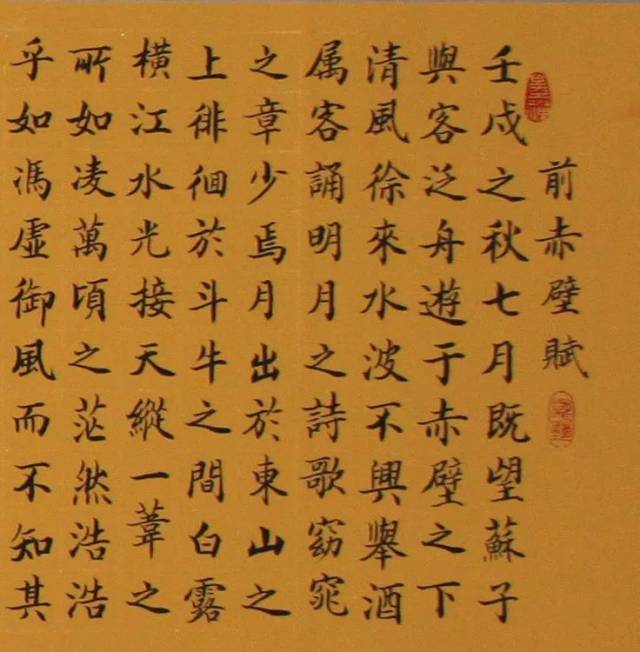 前赤壁賦
壬戌之秋七月既望蘇子
與客泛舟遊于赤壁之下
清風徐來水波不興舉酒
属客誦明月之詩歌窈窕
之章少焉月出於東山之
上徘徊於斗牛之間白露
橫江水光接天縱一葦之
所如凌萬頃之茫然浩浩
乎如馮虛御風而不知其